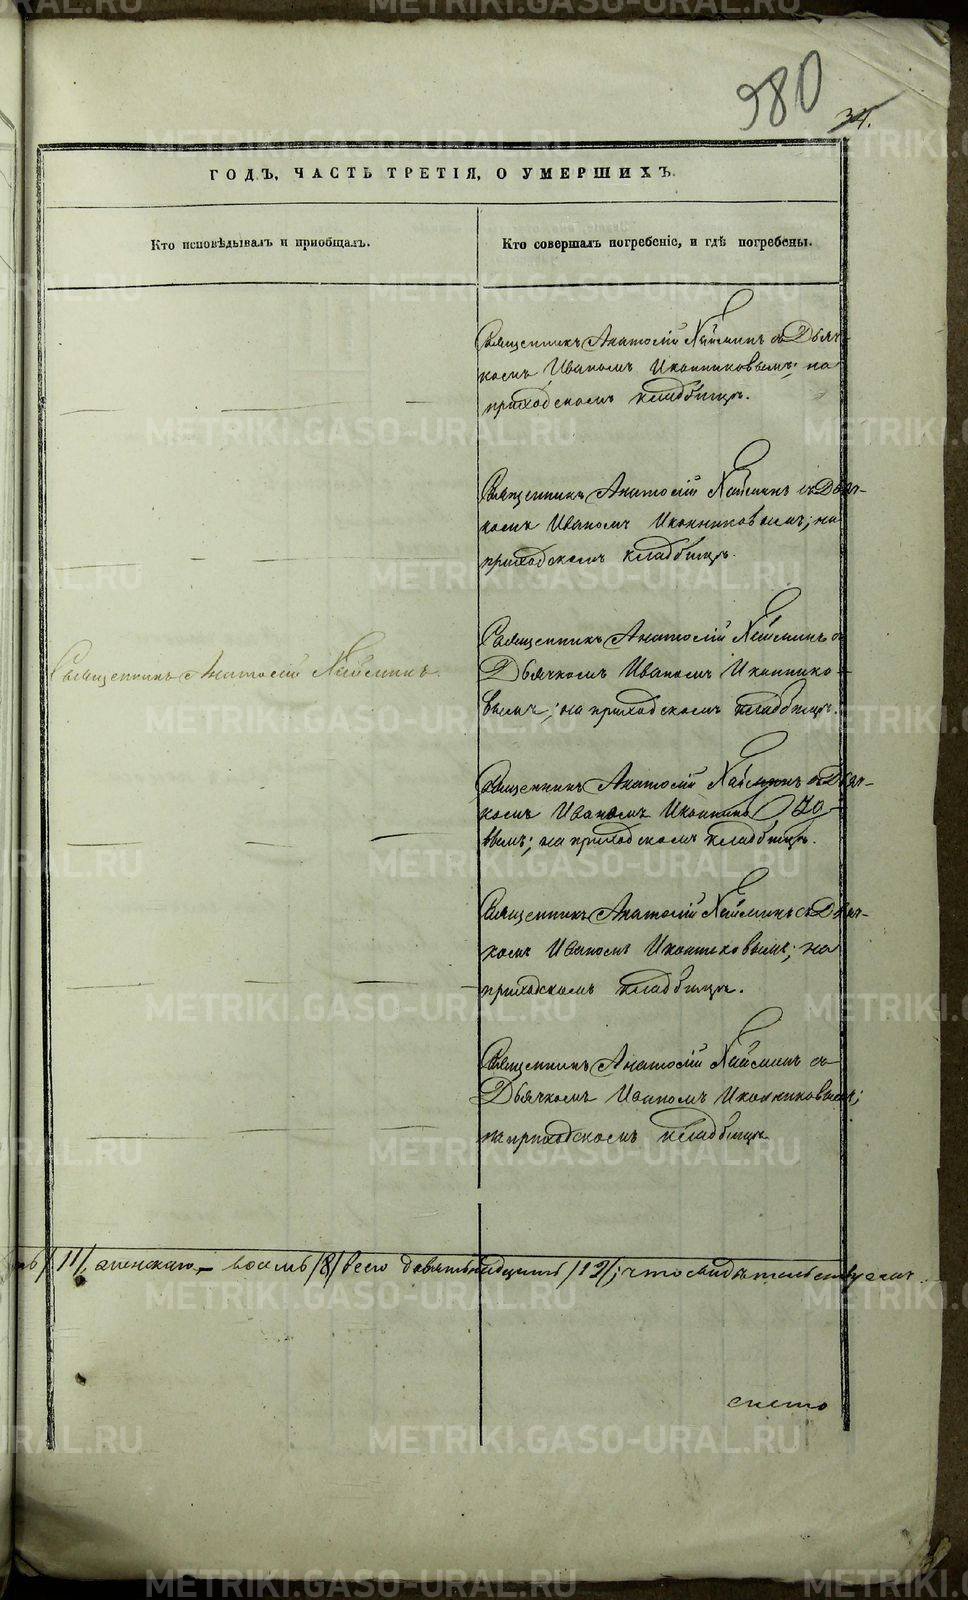 980
34.
ГОДЪ, ЧАСТЬ ТРЕТІЯ, О УМЕРШИХЪ.
Кто исповѣдывалъ и приобщалъ.
Кто совершалъ погребеніе, и гдѣ погребены.
Священникъ Анатолій Наймпинъ съ Дьяч-
комъ Иваномъ Иконниковымъ; на
приходскомъ кладбищѣ.
Священникъ Анатолій съ Дьяч-
комъ Иваномъ Иконниковымъ; на
приходскомъ кладбищѣ.
Священникъ Анатолій
Священникъ Анатолій съ
Дьячкомъ Иваномъ Иконнико-
вымъ; на приходскомъ кладбищѣ.
Священникъ Анатолій съ Дьяч-
комъ Иваномъ Иконнико-
вымъ; на приходскомъ кладбищѣ.
Священникъ Анатолій съ Дьяч-
комъ Иваномъ Иконниковымъ; на
приходскомъ кладбищѣ.
Священникъ Анатолій съ
Дьячкомъ Иваномъ Иконниковымъ;
на приходскомъ кладбищѣ
/11/, женскаго – восемь /8/ всего девятьнадцать /19/; что свидѣтельствуемъ
METRIKI.GASO-URAL.RU